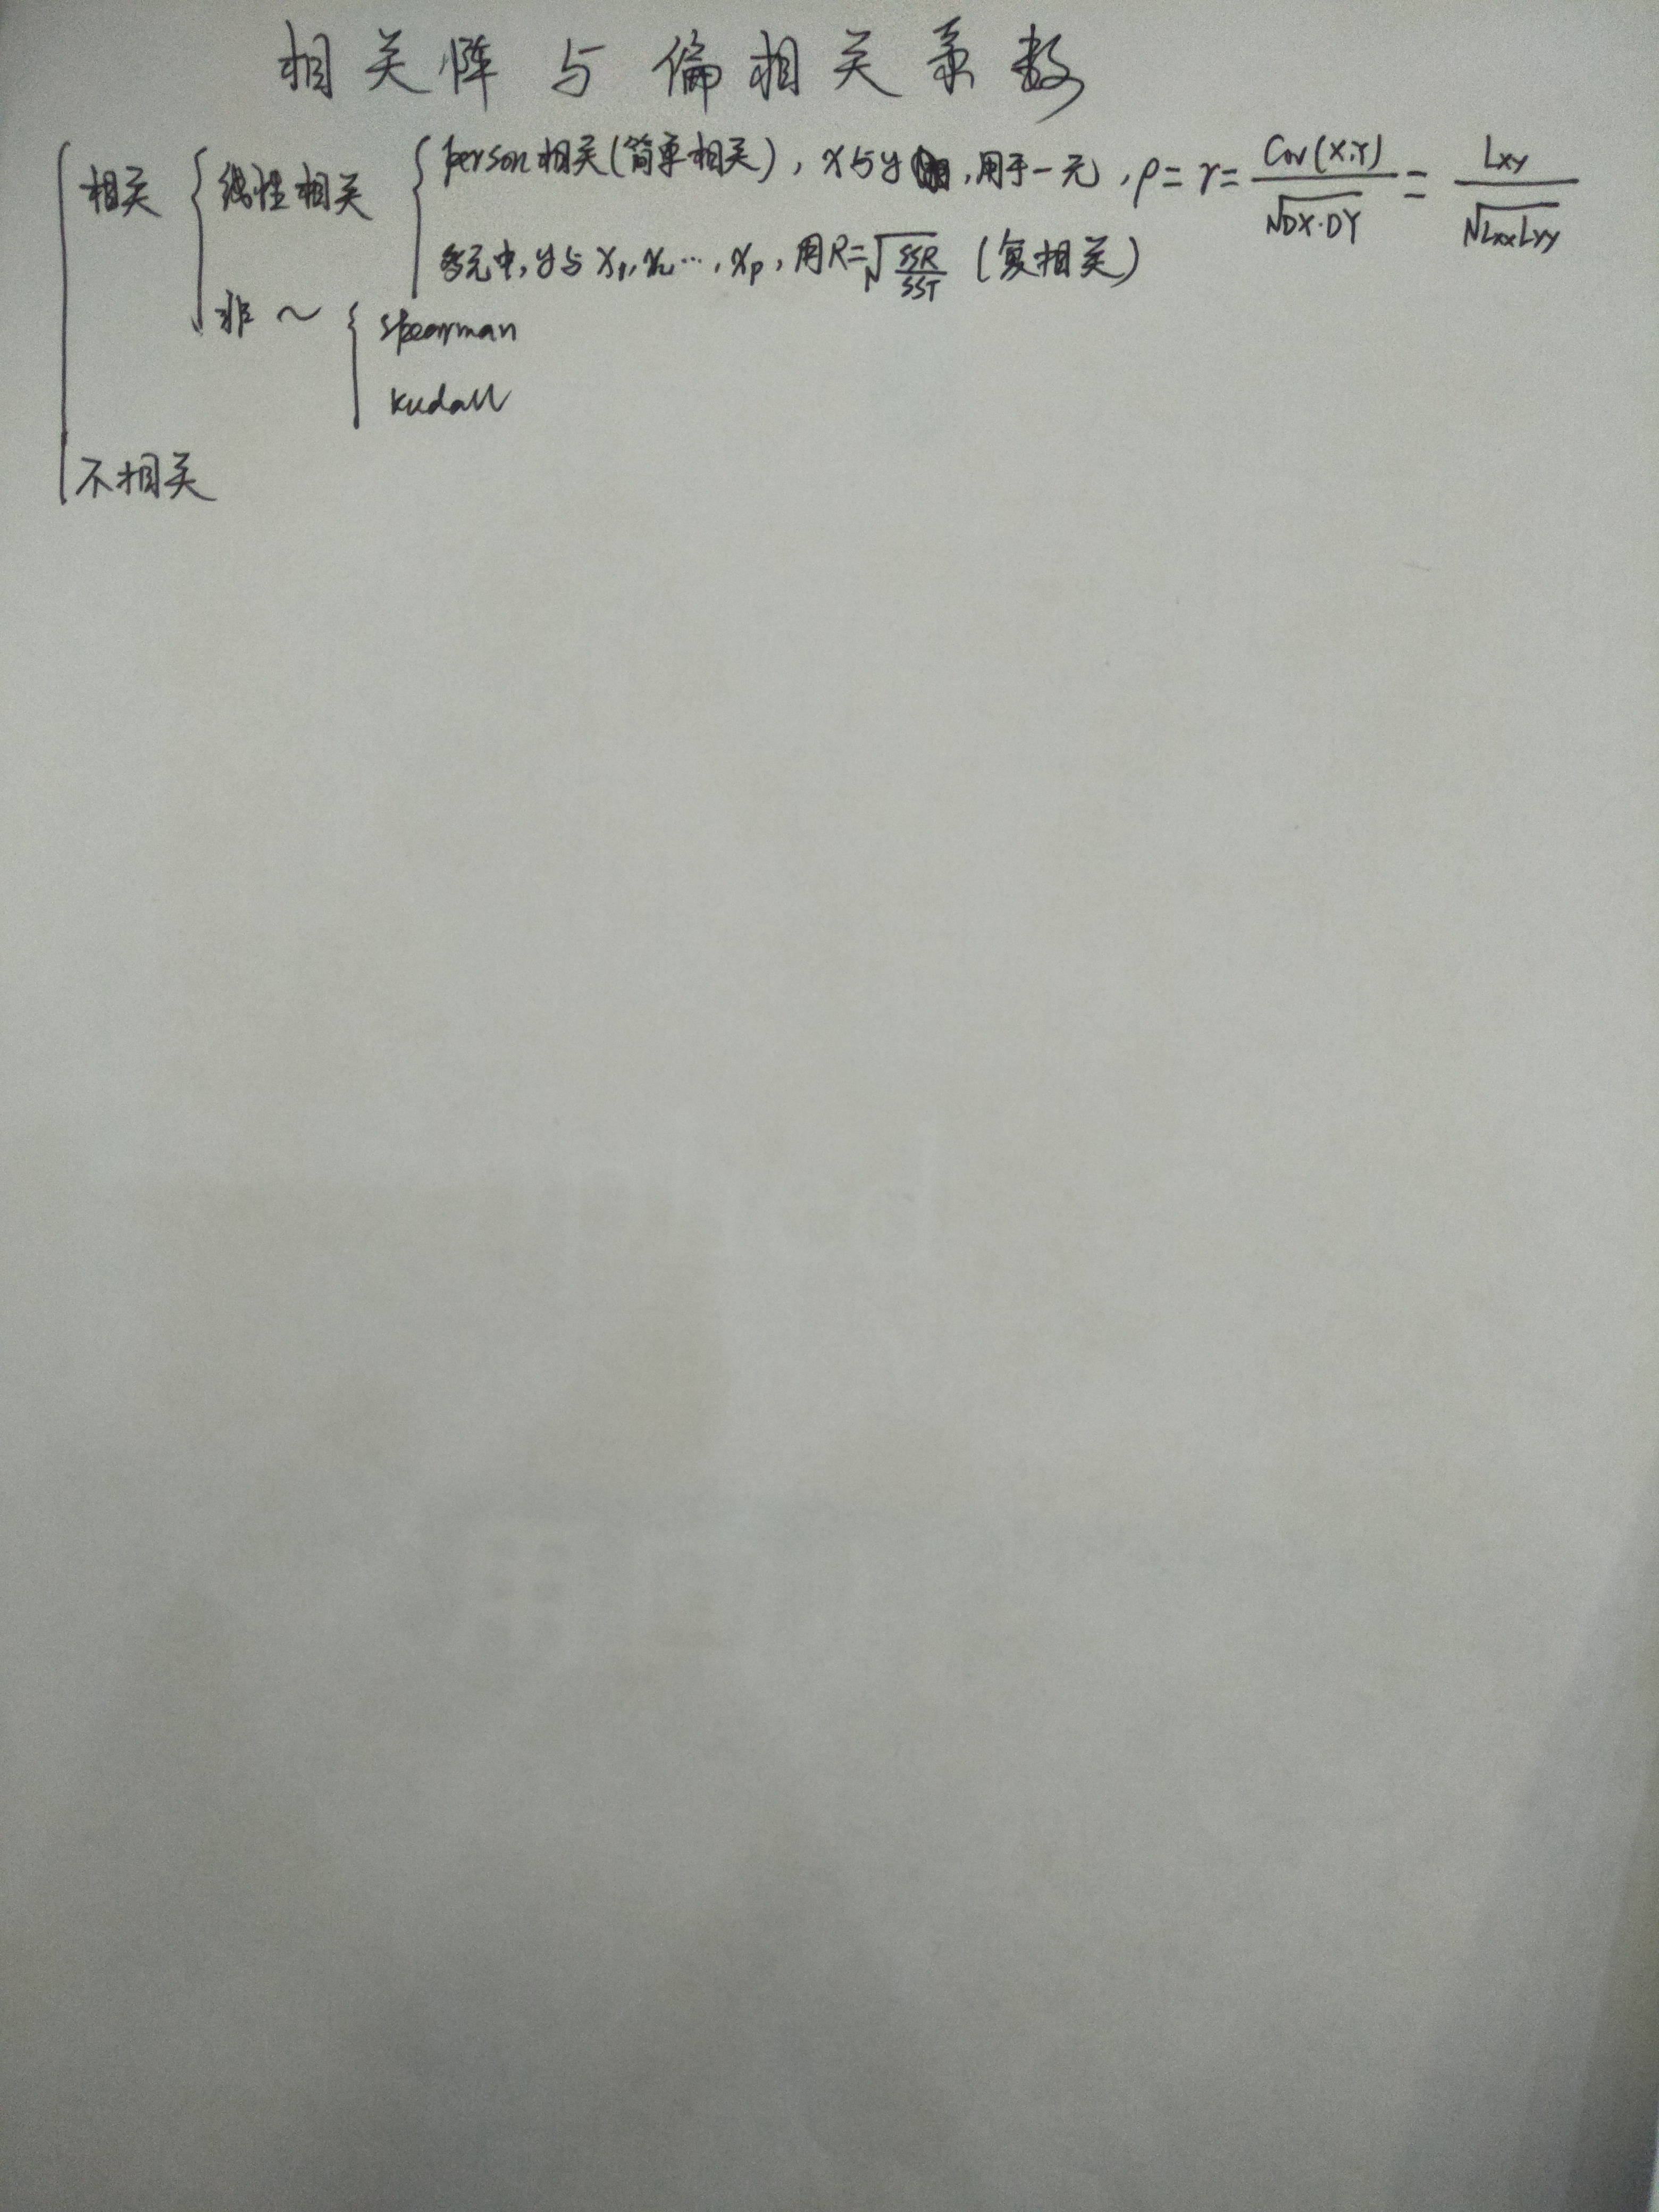 相关阵与偏相关系数
相关 线性相关 person相关(简单相关), x与y, 用于一元, ρ = r = Cov(X,Y) / √DX·DY = Lxy / √LxxLyy
多元中, y与 x₁, x₂ …, xp, 用R=√SSR/SST (复相关)
非 ~ spearman
kudall
不相关